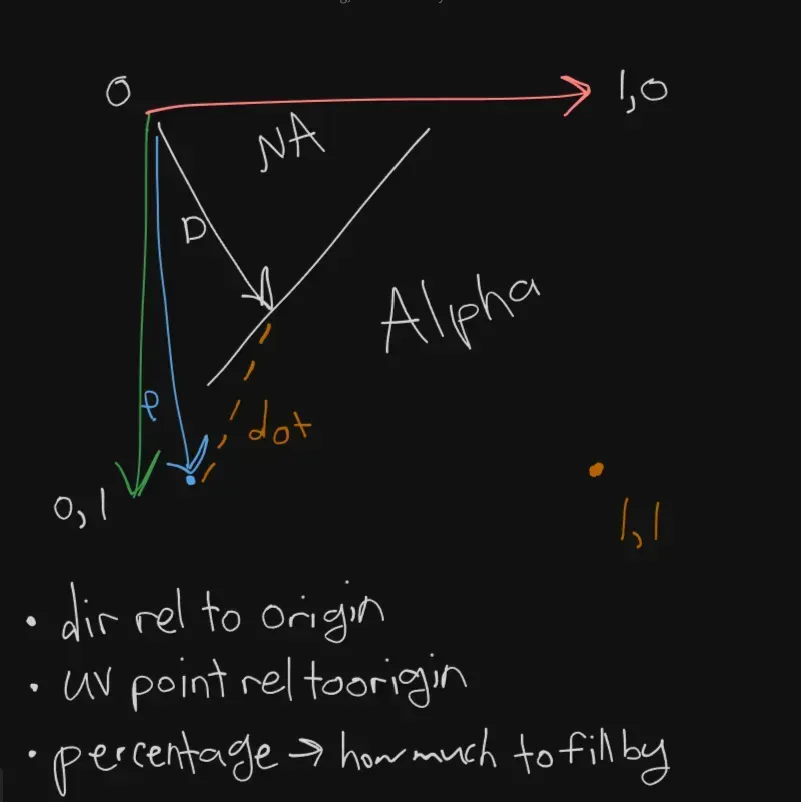 0
1,0
NA
D
Alpha
P
dot
0,1
1,1
• dir rel to origin
• UV point rel to origin
• percentage → how much to fill by